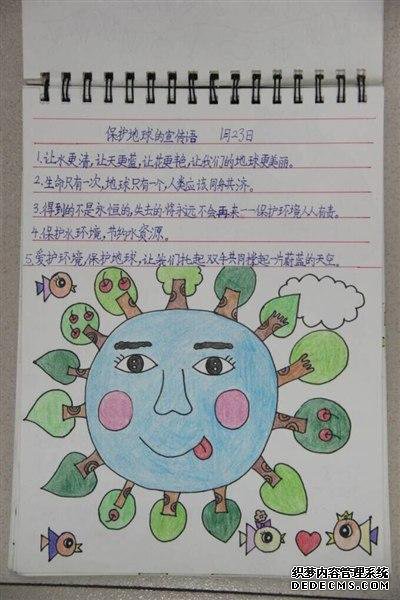 保护地球的宣传语 1月23日
1.让水更清,让天更蓝,让花更艳,让我们的地球更美丽。
2.生命只有一次,地球只有一个,人类应该同舟共济。
3.得到的不是永恒的,失去的将永远不会再来——保护环境人人有责。
4.保护水环境,节约水资源。
5.爱护环境,保护地球,让我们托起双手共同撑起一片蔚蓝的天空。
织梦内容管理系统
DEDECMS.COM